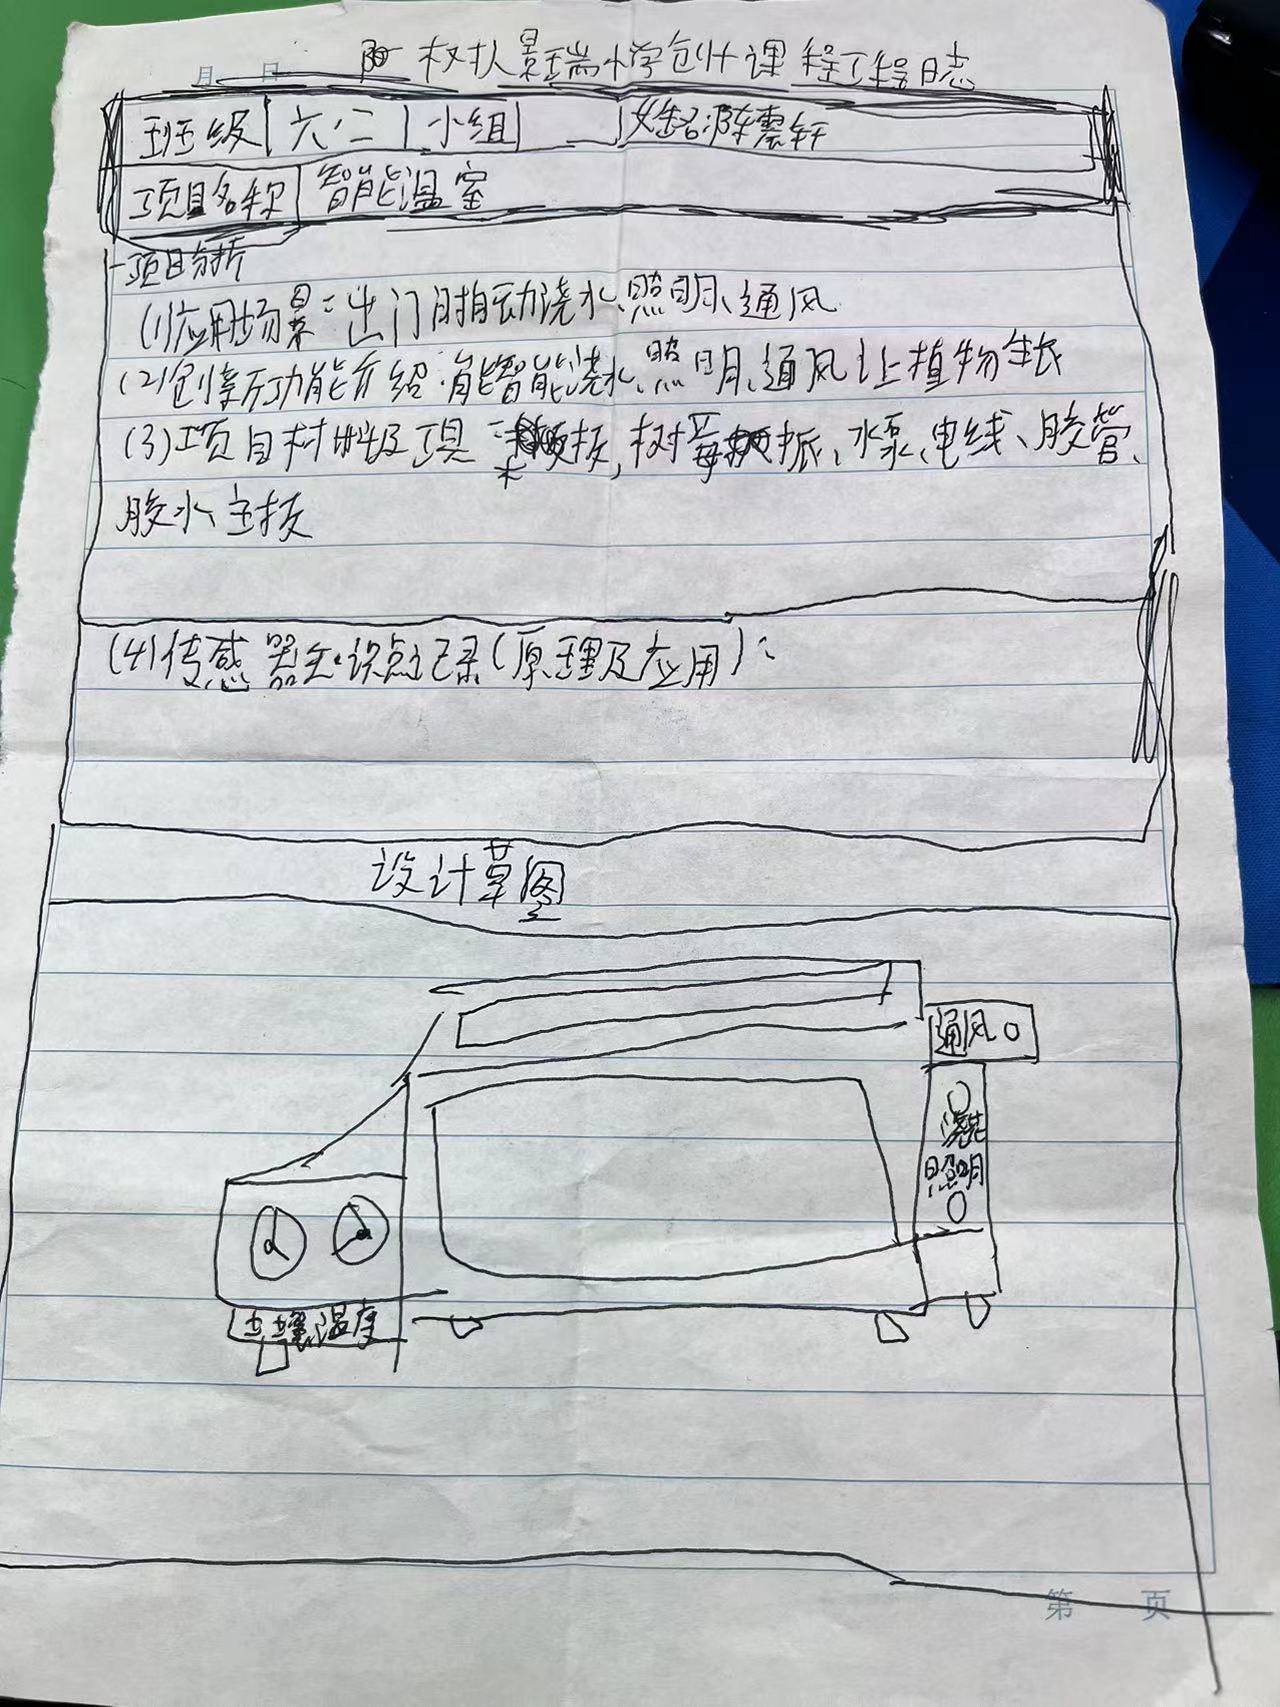 月 日
权扒景瑞小学创课程工程日志
班级 六.二 小组 姓名:陈震轩
项目名称 智能温室
一项目分析
(1)应用场景:出门时自动浇水、照明、通风
(2)创新功能介绍:能智能浇水、照明、通风让植物生长
(3)项目材料及工具:木板,树莓、水泵、电线、胶管、
胶水、主板
(4)传感器知识点记录(原理及应用):
设计草图
通风
浇花
照明
土壤温度
第 页